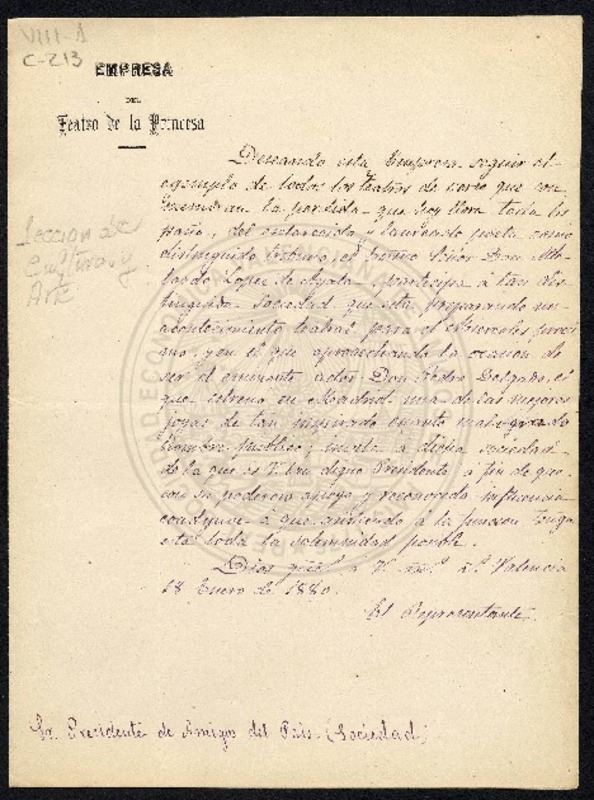 VIII-1
C-213
EMPRESA
DEL
Teatro de la Princesa
Sección de
Cultura y
Arte
Deseando esta Empresa seguir el
ejemplo de todos los teatros de verso que con
memoran la perdida que hoy llora toda Es
paña, del esclarecido y laureado poeta como
distinguido tribuno, el Señor Don
Lopez de Ayala, participa á tan dis
tinguida Sociedad que está preparando un
acontecimiento teatral para el Miercoles procsi
mo, y en el que aprovechando la ocasion de
ser el eminente actor Don Pedro Delgado, el
que estrenó en Madrid una de las mejores
joyas de tan inspirado cuanto malogrado
hombre publico; invita á dicha sociedad
de la que es V. tan digno Presidente á fin de que
con su poderoso apoyo y reconocida influencia
coadyuve á que asistiendo á la funcion tenga
esta toda la solemnidad posible.
Dios gue á V. ms. as. Valencia
18 Enero de 1880.
El Representante
Sr. Presidente de Amigos del Pais. (Sociedad)